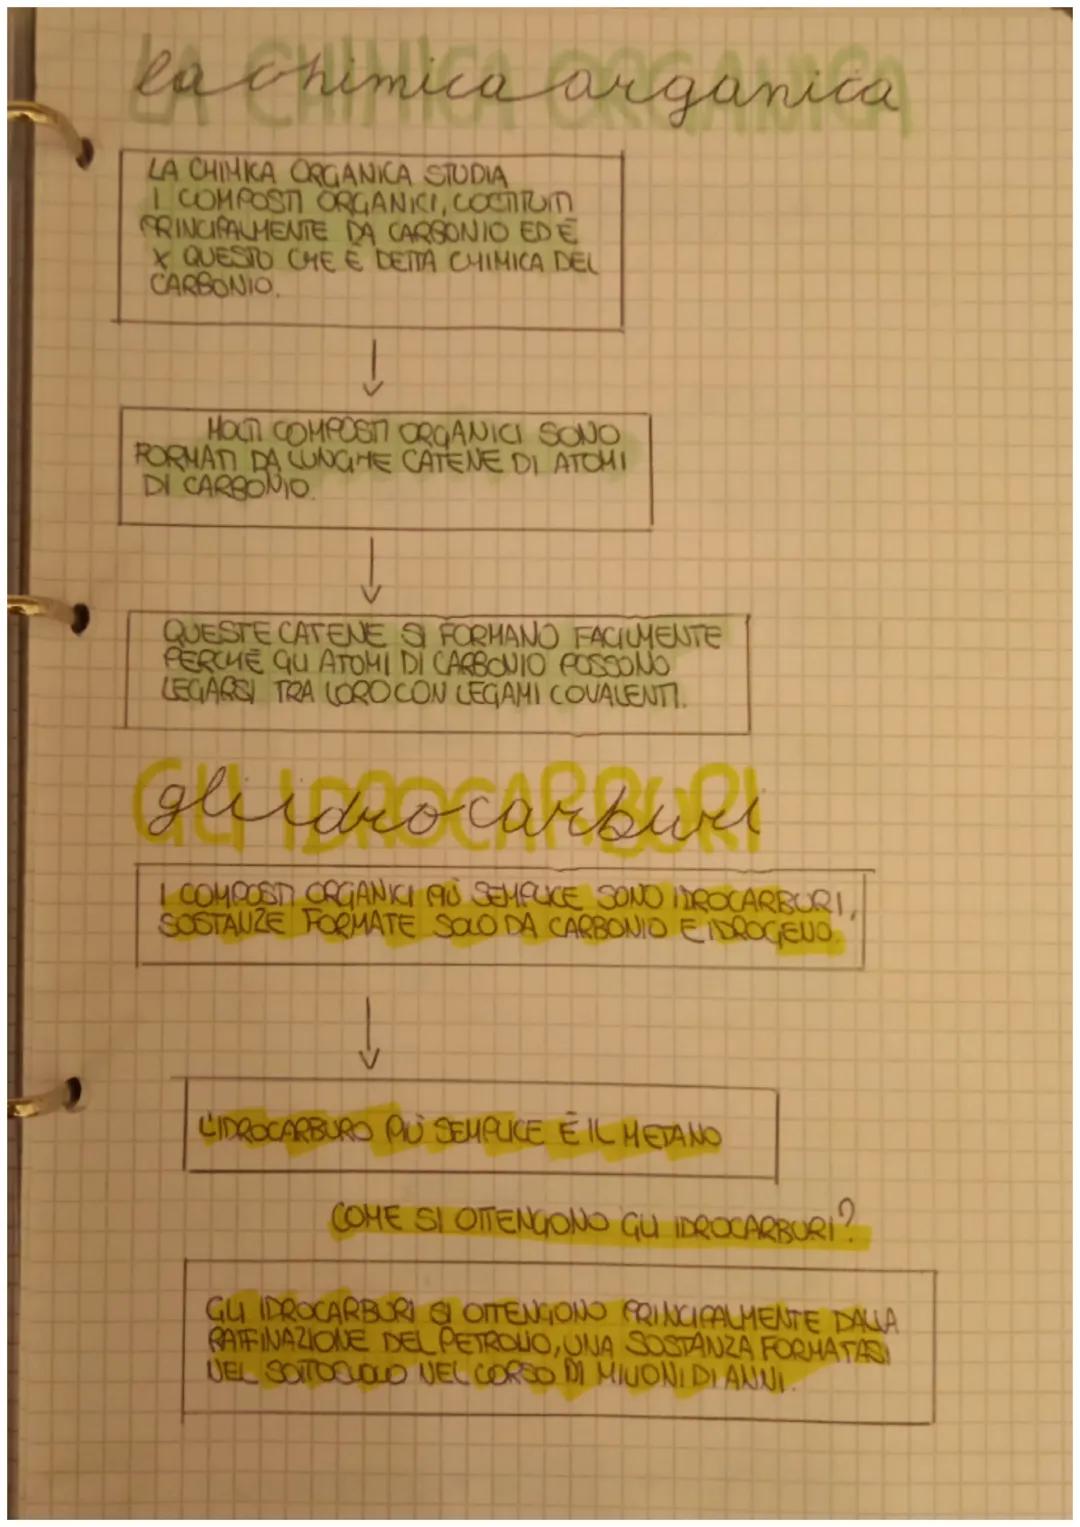 LA CHIMICA ORGANICA
la chimica organica
LA CHIMICA ORGANICA STUDIA
I COMPOSTI ORGANICI, COCTITUITI
PRINCIPALMENTE DA CARBONIO ED È
X QUESTO CHE È DETTA CHIMICA DEL
CARBONIO.
↓
MOLTI COMPOSTI ORGANICI SONO
FORMATI DA LUNGHE CATENE DI ATOMI
DI CARBONIO.
↓
QUESTE CATENE SI FORMANO FACILMENTE
PERCHÉ GLI ATOMI DI CARBONIO POSSONO
LEGARSI TRA LORO CON LEGAMI COVALENTI.
GLI IDROCARBURI
gli idrocarburi
I COMPOSTI ORGANICI PIÙ SEMPLICE SONO IDROCARBURI,
SOSTANZE FORMATE SOLO DA CARBONIO E IDROGENO.
↓
L'IDROCARBURO PIÙ SEMPLICE È IL METANO
COME SI OTTENGONO GLI IDROCARBURI?
GLI IDROCARBURI SI OTTENGONO PRINCIPALMENTE DALLA
RAFFINAZIONE DEL PETROLIO, UNA SOSTANZA FORMATASI
NEL SOTTOSUOLO NEL CORSO DI MILIONI DI ANNI.